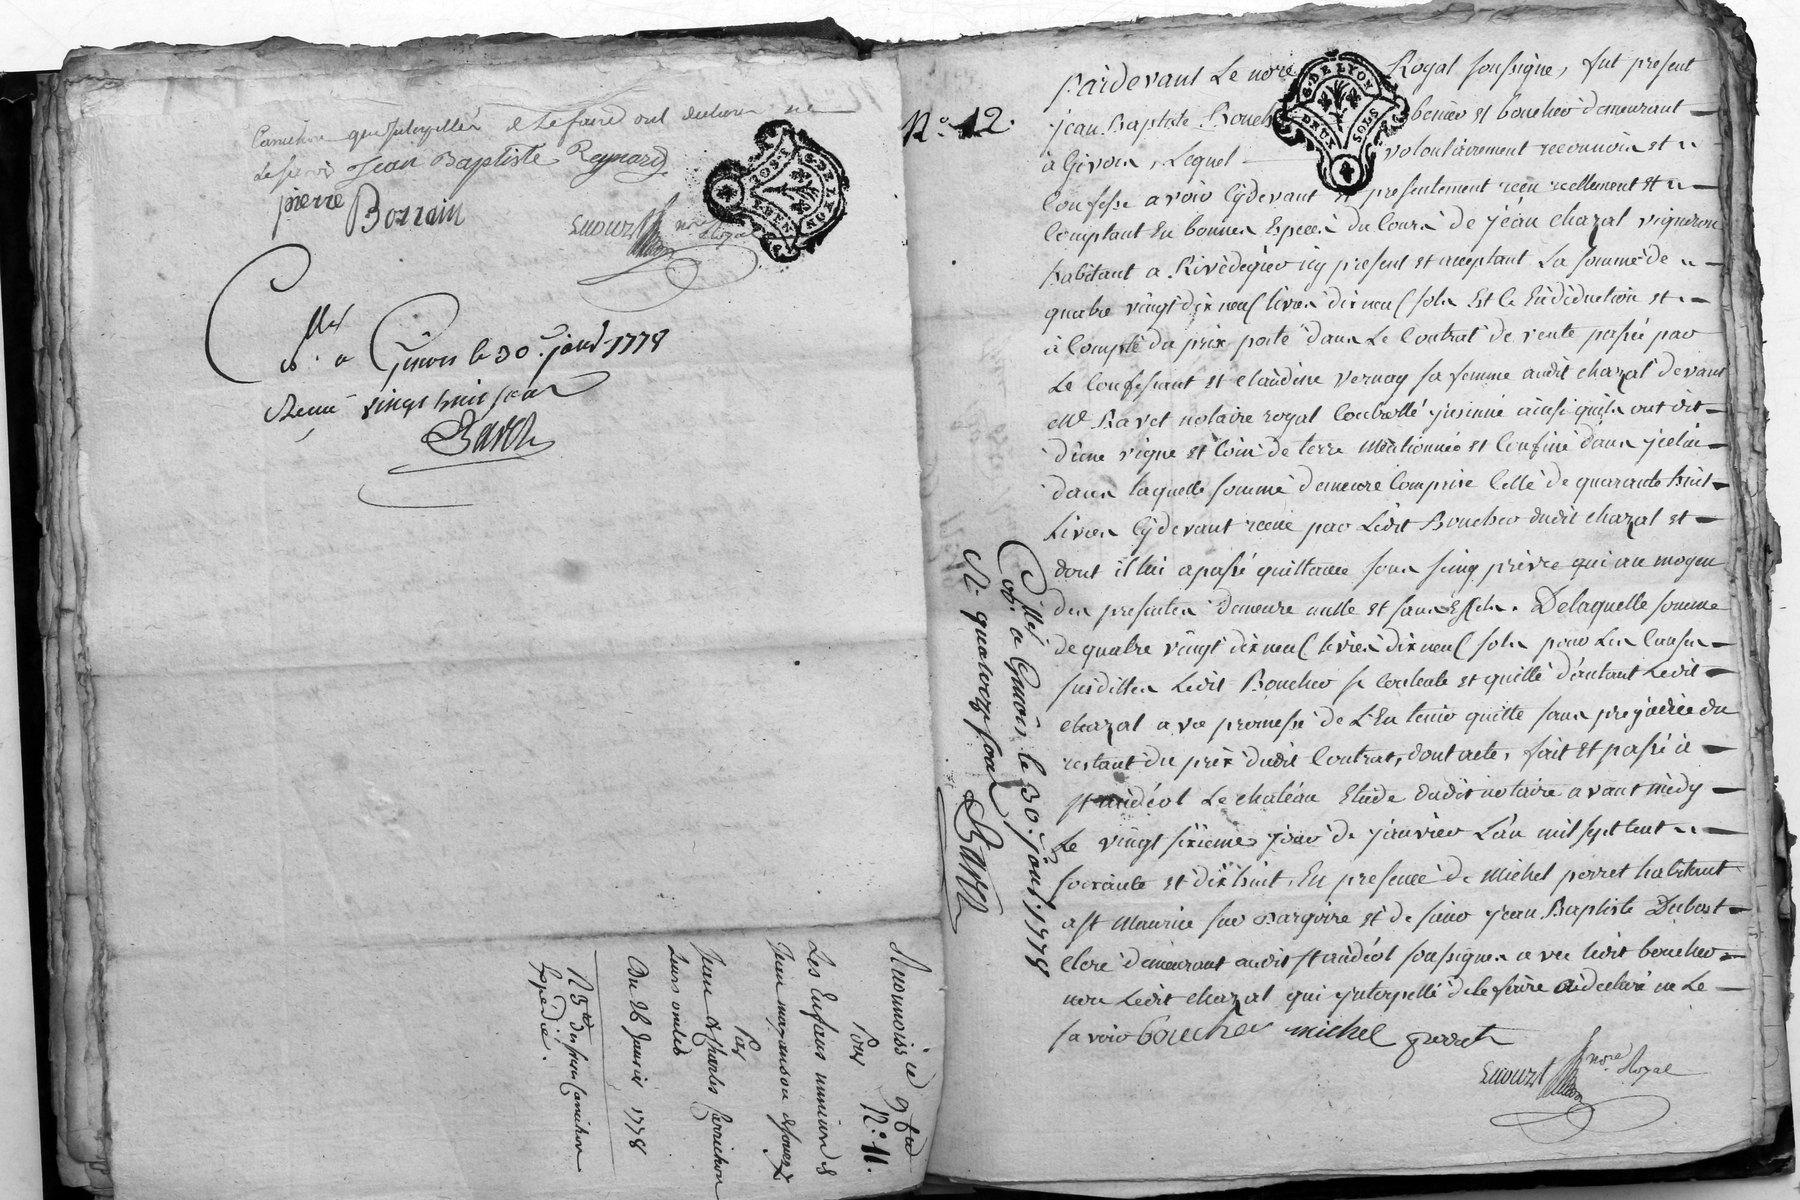 Carrichon qui interpellés de le faire ont declaré ne
le savoir Jean Baptiste Reynard
pierre Borrain
nre Royal
G. DE LYON
DEUX SOLS
Cllé à Givors le 30e janv. 1778
Reçu vingt huit sols
Ravet
N° 11.
Pour
Les Enfans mineurs de
Par
Jean & Charles Carrichon
Leurs oncles
Du 26 Janvier 1778
Expédié.
N° 12.
Pardevant Le nore Royal soussigné, fut present
jean Baptiste Boucher
G. DE LYON
DEUX SOLS
et boucher demeurant
à Givors, Lequel volontairement reconnoit et
Confesse avoir Cydevant et presentement reçu reellement et
Comptant En bonnes Especes du Cours de jean chazal vigneron
habitant a Rivedegier icy present et acceptant La somme de
quatre vingt dix neuf livres dix neuf sols Et Ce En déduction et
à Compte du prix porté dans Le Contrat de vente passée par
Le Confessant et claudine vernay sa femme audit chazal devant
Me Ravet notaire royal Controllé insinué ainsi qu'ils ont dit
d'une vigne et Coin de terre mentionnés et Confiné dans jcelui
dans laquelle somme demeure Comprise Celle de quarante huit
Livres Cydevant reçue par Ledit Boucher dudit chazal et
dont il lui a passé quittance sous seing privé qui au moyen
des presentes demeure nulle et sans Effets. De laquelle somme
de quatre vingt dix neuf livres dix neuf sols pour Les Causes
susdittes Ledit Boucher se Contente et quitte d'autant Ledit
chazal avec promesse de L'En tenir quitte sans prejudice du
restant du prix dudit Contrat, dont acte, fait et passé à
st andéol Le chateau Etude dudit notaire avant midy
Le vingt sixieme jour de janvier L'an mil sept cent
soixante et dix huit, En presence de michel perret habitant
a st maurice sur dargoire et de sieur jean Baptiste Dubost
Clerc demeurant audit st andéol soussignés avec Ledit boucher
non Ledit chazal qui jnterpellé de le faire a declaré ne Le
savoir boucher michel perret
nore Royal
Cllé à Givors le 30e janv. 1778
R. quatorze sols
Ravet